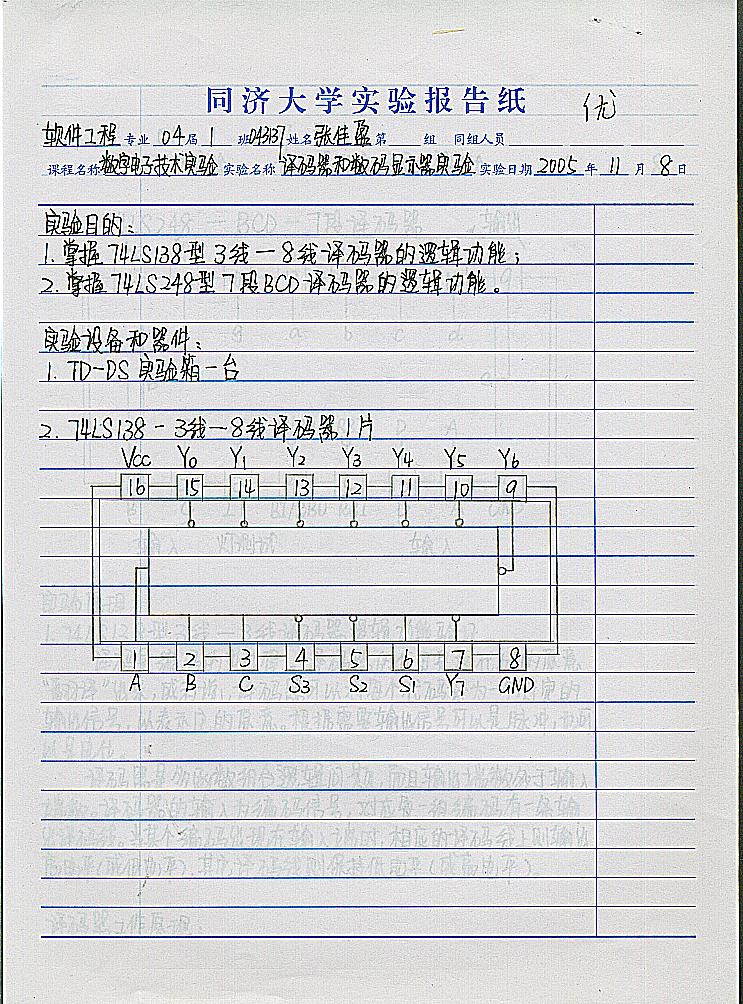 同济大学实验报告纸
优
软件工程 专业 04 届 1 班 043137 姓名 张佳盈 第 组 同组人员
课程名称 数字电子技术实验 实验名称 译码器和数码显示器实验 实验日期 2005 年 11 月 8 日
实验目的:
1. 掌握74LS138型3线—8线译码器的逻辑功能;
2. 掌握74LS248型7段BCD译码器的逻辑功能。
实验设备和器件:
1. TD-DS 实验箱一台
2. 74LS138-3线—8线译码器1片
Vcc Y0 Y1 Y2 Y3 Y4 Y5 Y6
16 15 14 13 12 11 10 9
1 2 3 4 5 6 7 8
A B C S3 S2 S1 Y7 GND